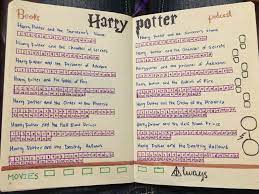 Books
Harry potter
podcast
Harry Potter and the Sorcerer's Stone
Harry Potter and the Chamber of Secrets
Harry Potter and the Prisoner of Azkaban
Harry Potter and the Goblet of Fire
Harry Potter and the Order of the Phoenix
Harry Potter and the Half Blood Prince
Harry Potter and the Deathly Hallows
MOVIES
Harry Potter and the Sorcerer's Stone
Harry Potter and the Chamber of Secrets
Harry Potter and the prisoner of Azkaban
Harry Potter and the Goblet of Fire
Harry Potter and the Order of the Phoenix
Harry Potter and the Half Blood Prince
Harry Potter and the Deathly Hallows
Always